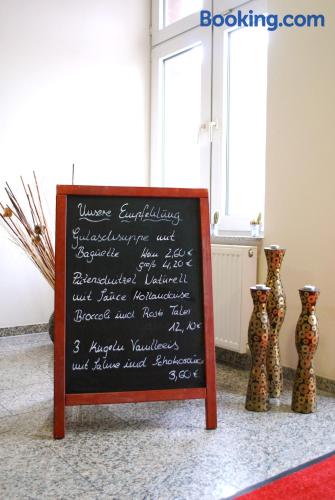 Booking.com
Unsere Empfehlung
Gulaschsuppe mit
Baguette klein 2,60 €
groß 4,20 €
Putenschnitzel Naturell
mit Sauce Hollandaise
Broccoli und Rösti Taler
12,10 €
3 Kugeln Vanilleeis
mit Sahne und Schokosauce
3,60 €